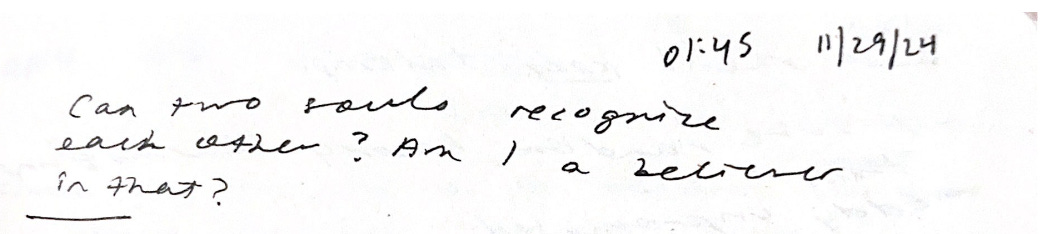 01:45 11/29/24
Can two souls recognize
each other? Am I a believer
in that?